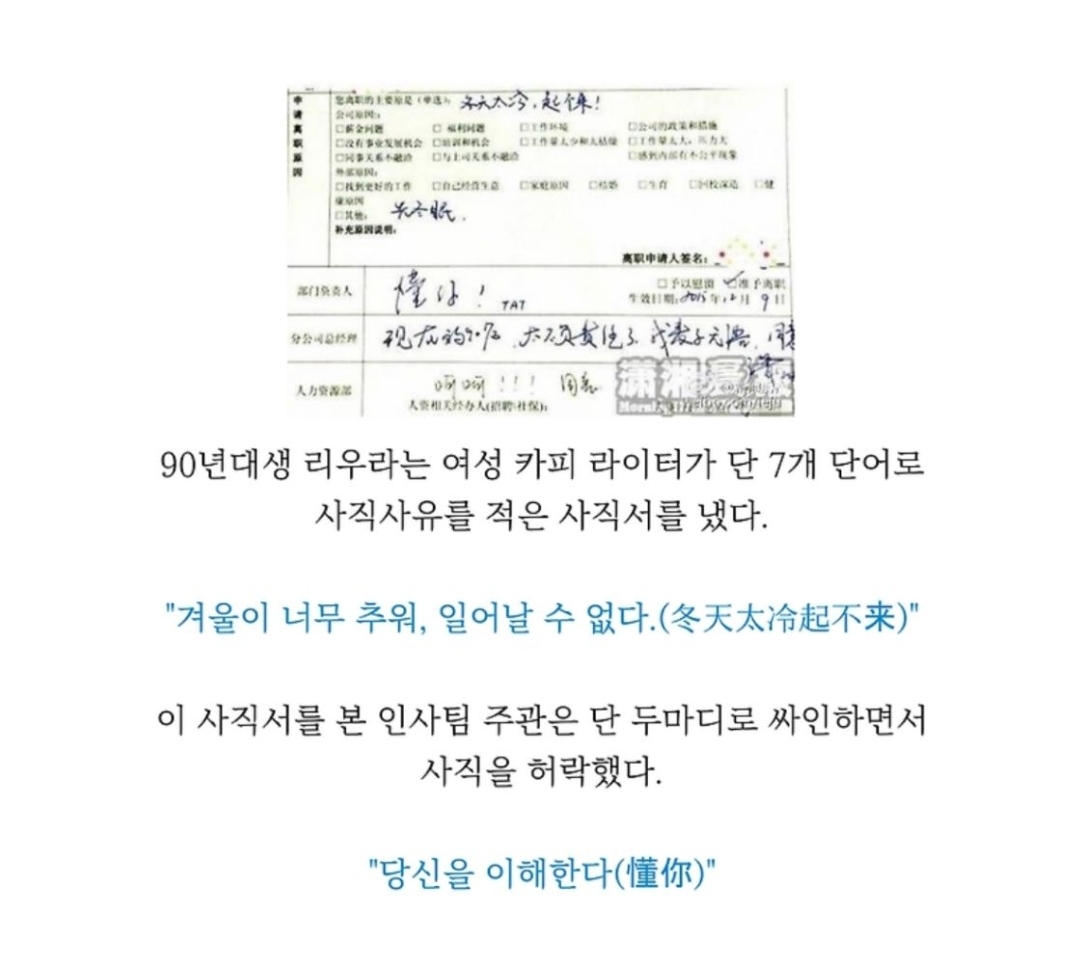 申请离职原因
您离职的主要原是(单选): 冬天太冷,起不来!
公司原因:
□薪金问题 □福利问题 □工作环境 □公司的政策和措施
□没有事业发展机会 □培训和机会 □工作量太少和太枯燥 □工作量太大,压力大
□同事关系不融洽 □与上司关系不融洽 □感到内部有不公平现象
外部原因:
□找到更好的工作 □自己经营生意 □家庭原因 □结婚 □生育 □回校深造 □健
康原因
□其他: 冬眠.
补充原因说明:
离职申请人签名:
部门负责人 懂你! TAT □予以慰留 □准予离职
生效日期: 2015年12月9日
分公司总经理 现在的90后,太不负责任了,我表示无语.
人力资源部 呵呵!!!
人资相关经办人(招聘\社保):
潇湘晨报
90년대생 리우라는 여성 카피 라이터가 단 7개 단어로
사직사유를 적은 사직서를 냈다.
"겨울이 너무 추워, 일어날 수 없다.(冬天太冷起不来)"
이 사직서를 본 인사팀 주관은 단 두마디로 싸인하면서
사직을 허락했다.
"당신을 이해한다(懂你)"